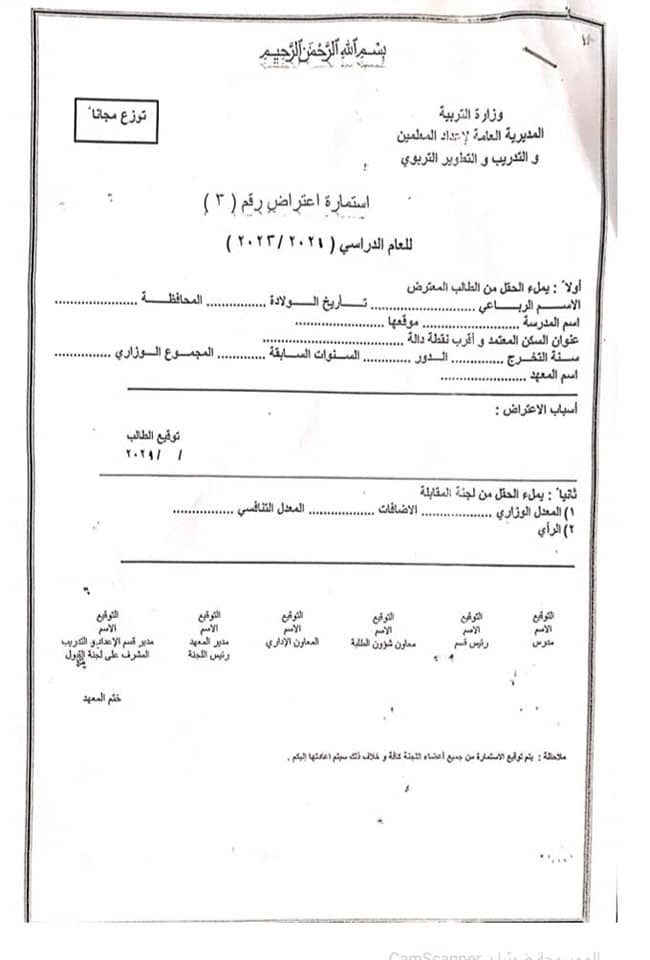 بسم الله الرحمن الرحيم
توزع مجاناً
وزارة التربية
المديرية العامة لإعداد المعلمين
و التدريب و التطوير التربوي
استمارة اعتراض رقم ( ٣ )
للعام الدراسي ( ٢٠٢١ / ٢٠٢٣ )
أولاً : يملء الحقل من الطالب المعترض
الاسم الرباعي .......................... تأريخ الولادة ............... المحافظة .....................
اسم المدرسة ........................ موقعها ......................
عنوان السكن المعتمد و أقرب نقطة دالة ...................................
سنة التخرج ............. الدور ............ السنوات السابقة ............ المجموع الوزاري ..............
اسم المعهد .....................
أسباب الاعتراض :
توقيع الطالب
/ / ٢٠٢١
ثانياً : يملء الحقل من لجنة المقابلة
١) المعدل الوزاري ................. الاضافات ................ المعدل التنافسي ...............
٢) الرأي
التوقيع التوقيع التوقيع التوقيع التوقيع التوقيع
الاسم الاسم الاسم الاسم الاسم الاسم
مدرس رئيس قسم معاون شؤون الطلبة المعاون الإداري مدير المعهد مدير قسم الإعداد و التدريب
رئيس اللجنة المشرف على لجنة القبول
ختم المعهد
ملاحظة : يتم توقيع الاستمارة من جميع أعضاء اللجنة كافة و خلاف ذلك سيتم اعادتها إليكم .
الممسوحة ضوئيا بـ CamScanner